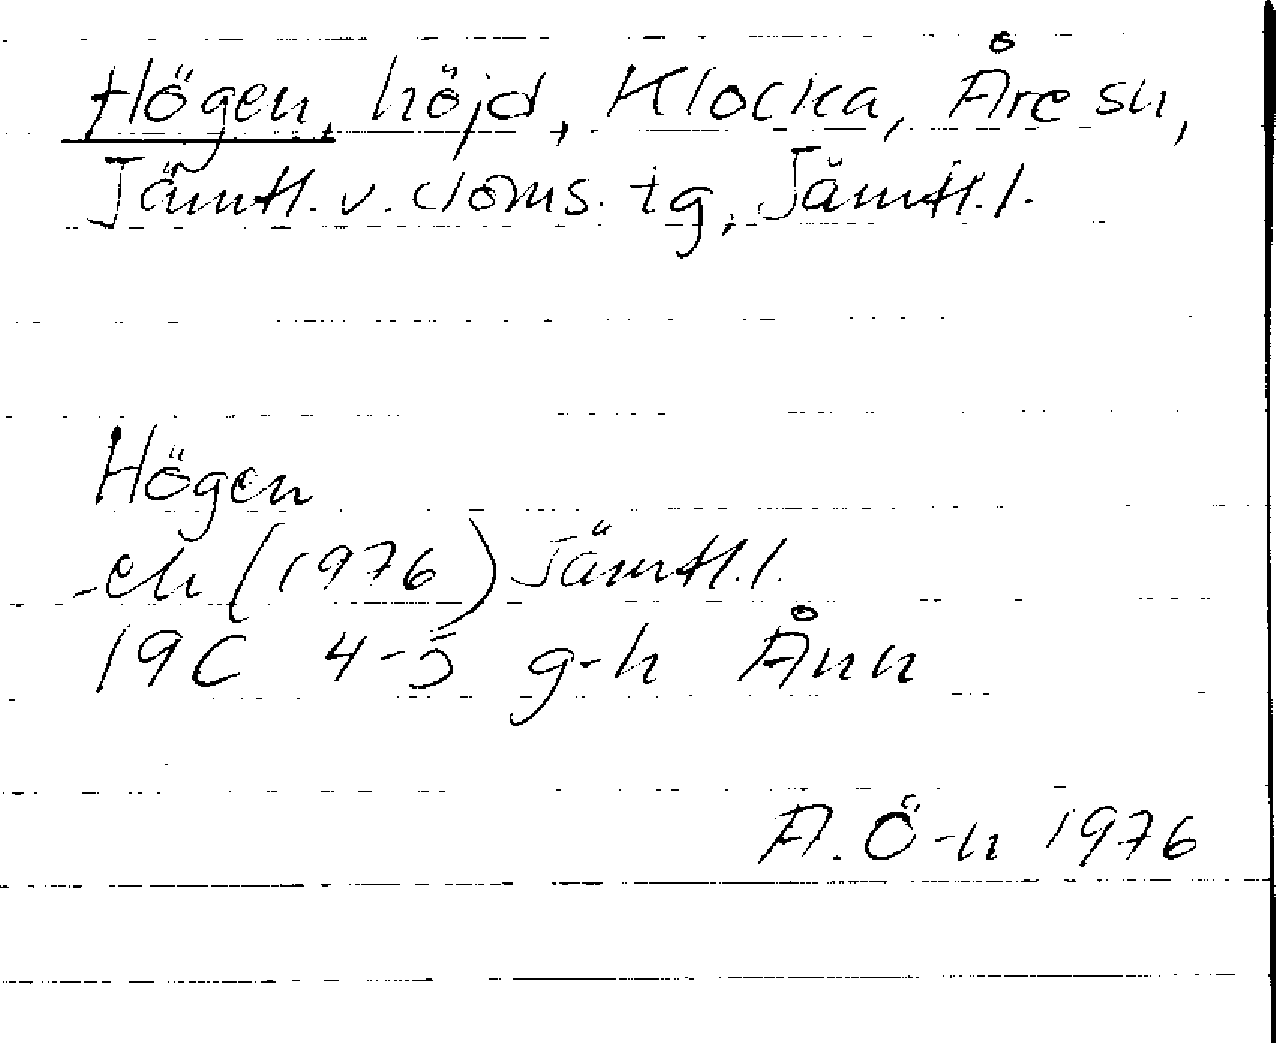 Högen, höjd, Klocka, Åre sn,
Jämtl. v. doms. tg, Jämtl. l.
Högen
-ek (1976) Jämtl. l.
19C 4-5 g-h Ånn
A. Ö-n 1976